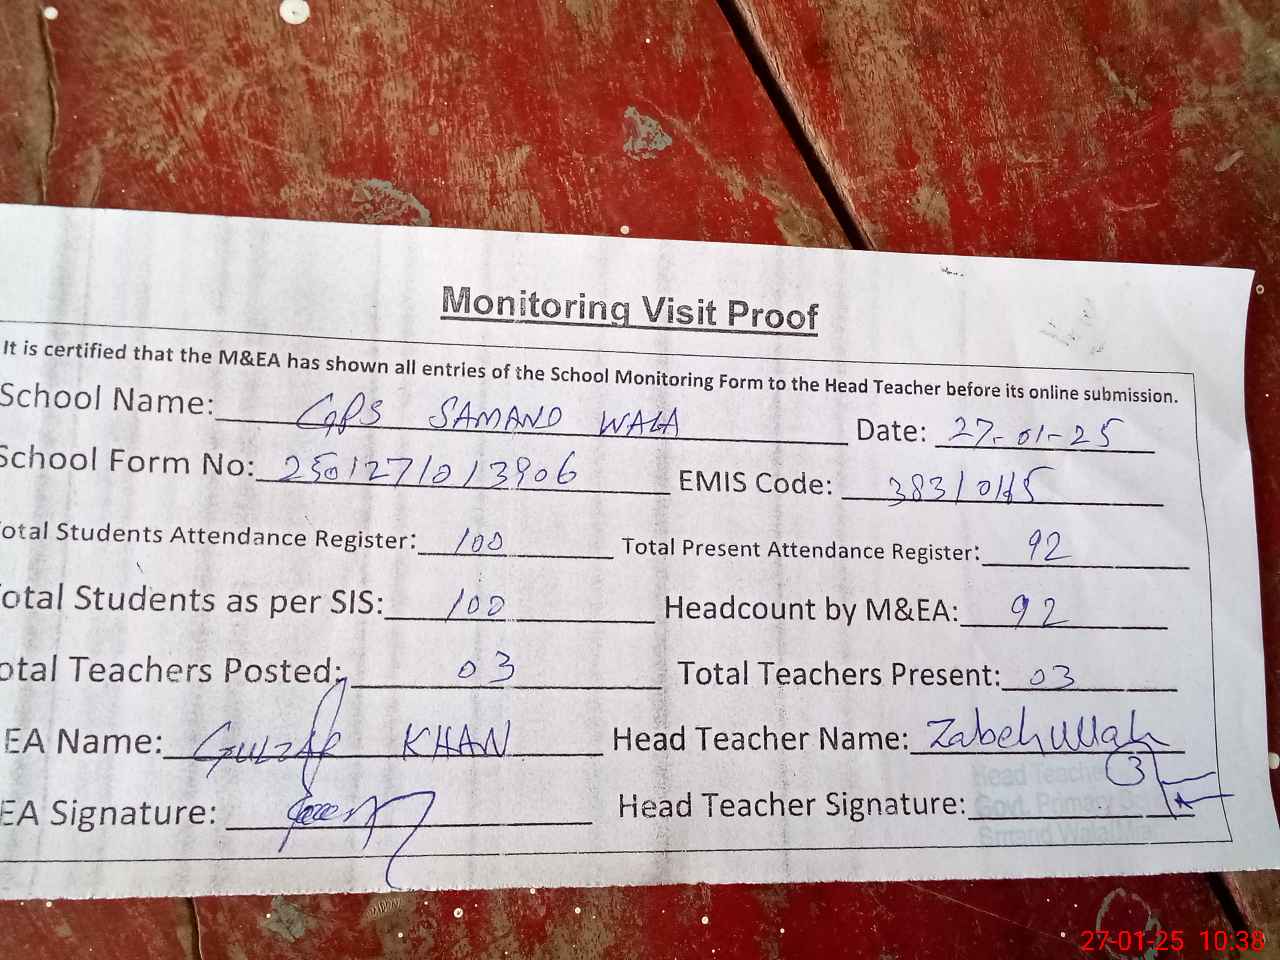 Monitoring Visit Proof
It is certified that the M&EA has shown all entries of the School Monitoring Form to the Head Teacher before its online submission.
School Name: GPS SAMAND WALA Date: 27-01-25
School Form No: 2501271013906 EMIS Code:
otal Students Attendance Register: 100 Total Present Attendance Register: 92
otal Students as per SIS: 100 Headcount by M&EA: 92
otal Teachers Posted: 03 Total Teachers Present: 03
EA Name: GULZAR KHAN Head Teacher Name: Zabehullah
EA Signature: Head Teacher Signature: 3
Head Teache
Govt. Primary
27-01-25 10:38